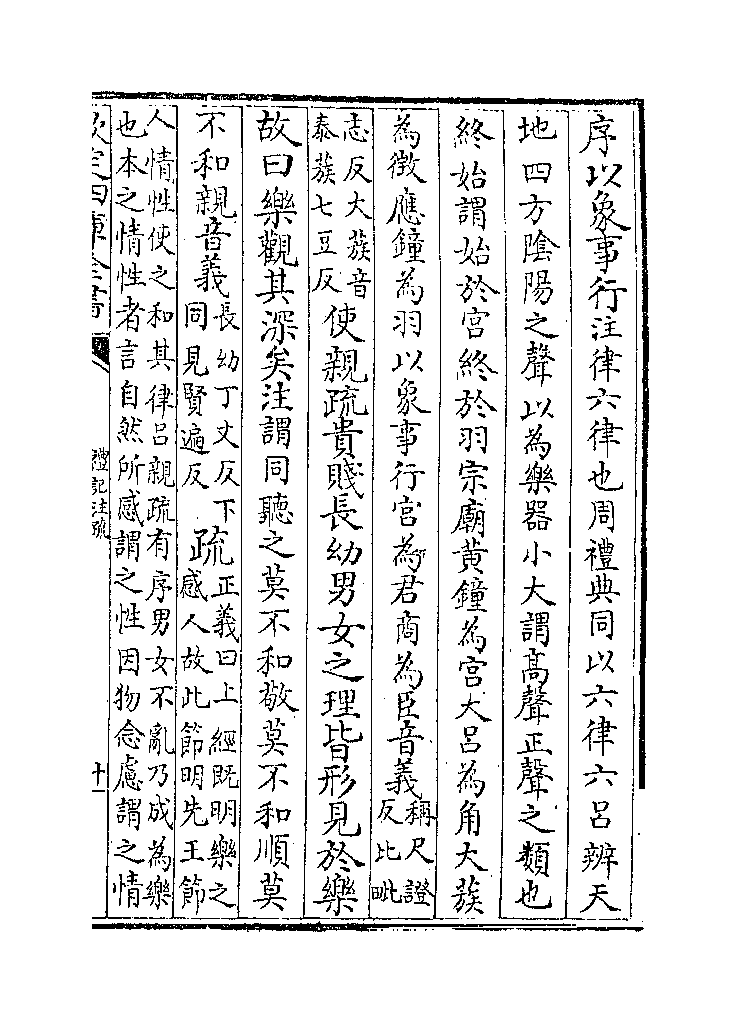 序以象事行注律六律也周禮典同以六律六吕辨天
地四方陰陽之聲以為樂器小大謂髙聲正聲之類也
終始謂始於宫終於羽宗廟黄鐘為宫大吕為角大蔟
為徴應鐘為羽以象事行宫為君商為臣音義稱尺證
反比毗
志反大蔟音
泰蔟七豆反使親疏貴賤長幼男女之理皆形見於樂
故曰樂觀其深矣注謂同聽之莫不和敬莫不和順莫
不和親音義長幼丁丈反下
同見賢遍反疏正義曰上經既明樂之
感人故此節明先王節
人情性使之和其律吕親疏有序男女不亂乃成為樂
也本之情性者言自然所感謂之性因物念慮謂之情
欽定四庫全書
禮記注疏
十一